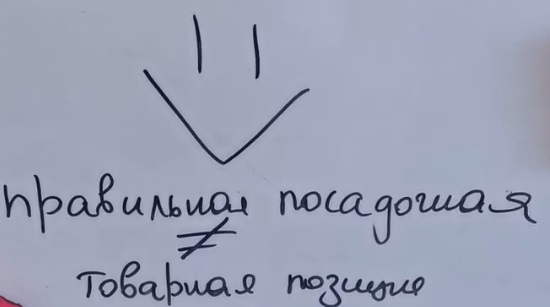 правильная посадочная
≠
товарная позиция